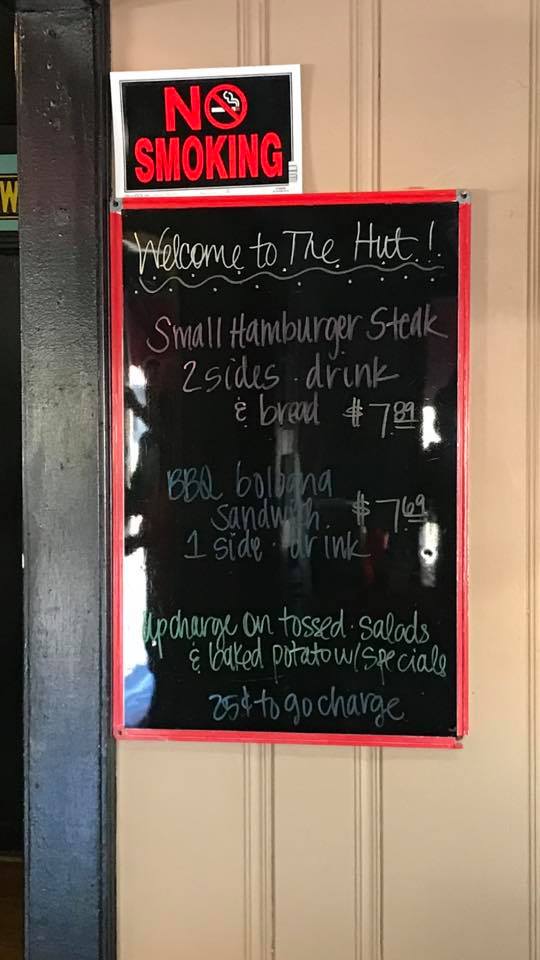 NO
SMOKING
W
Welcome to The Hut!
Small Hamburger Steak
2 sides . drink
& bread $7.89
BBQ bologna
sandwich. $7.69
1 side . drink
Upcharge on tossed . salads
& baked potato w/ specials
25¢ to go charge